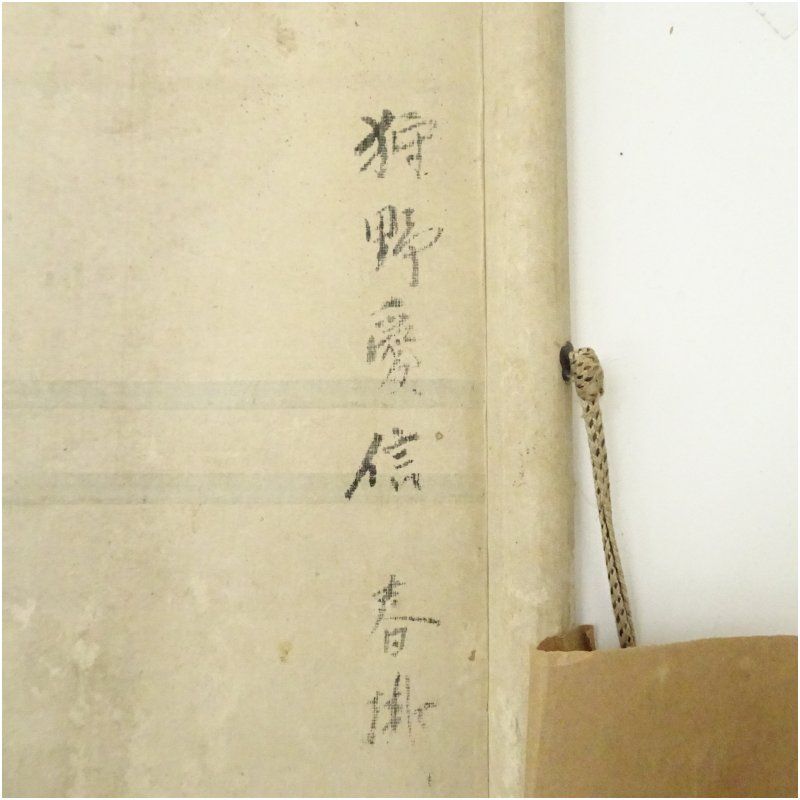 狩野慶信 春掛